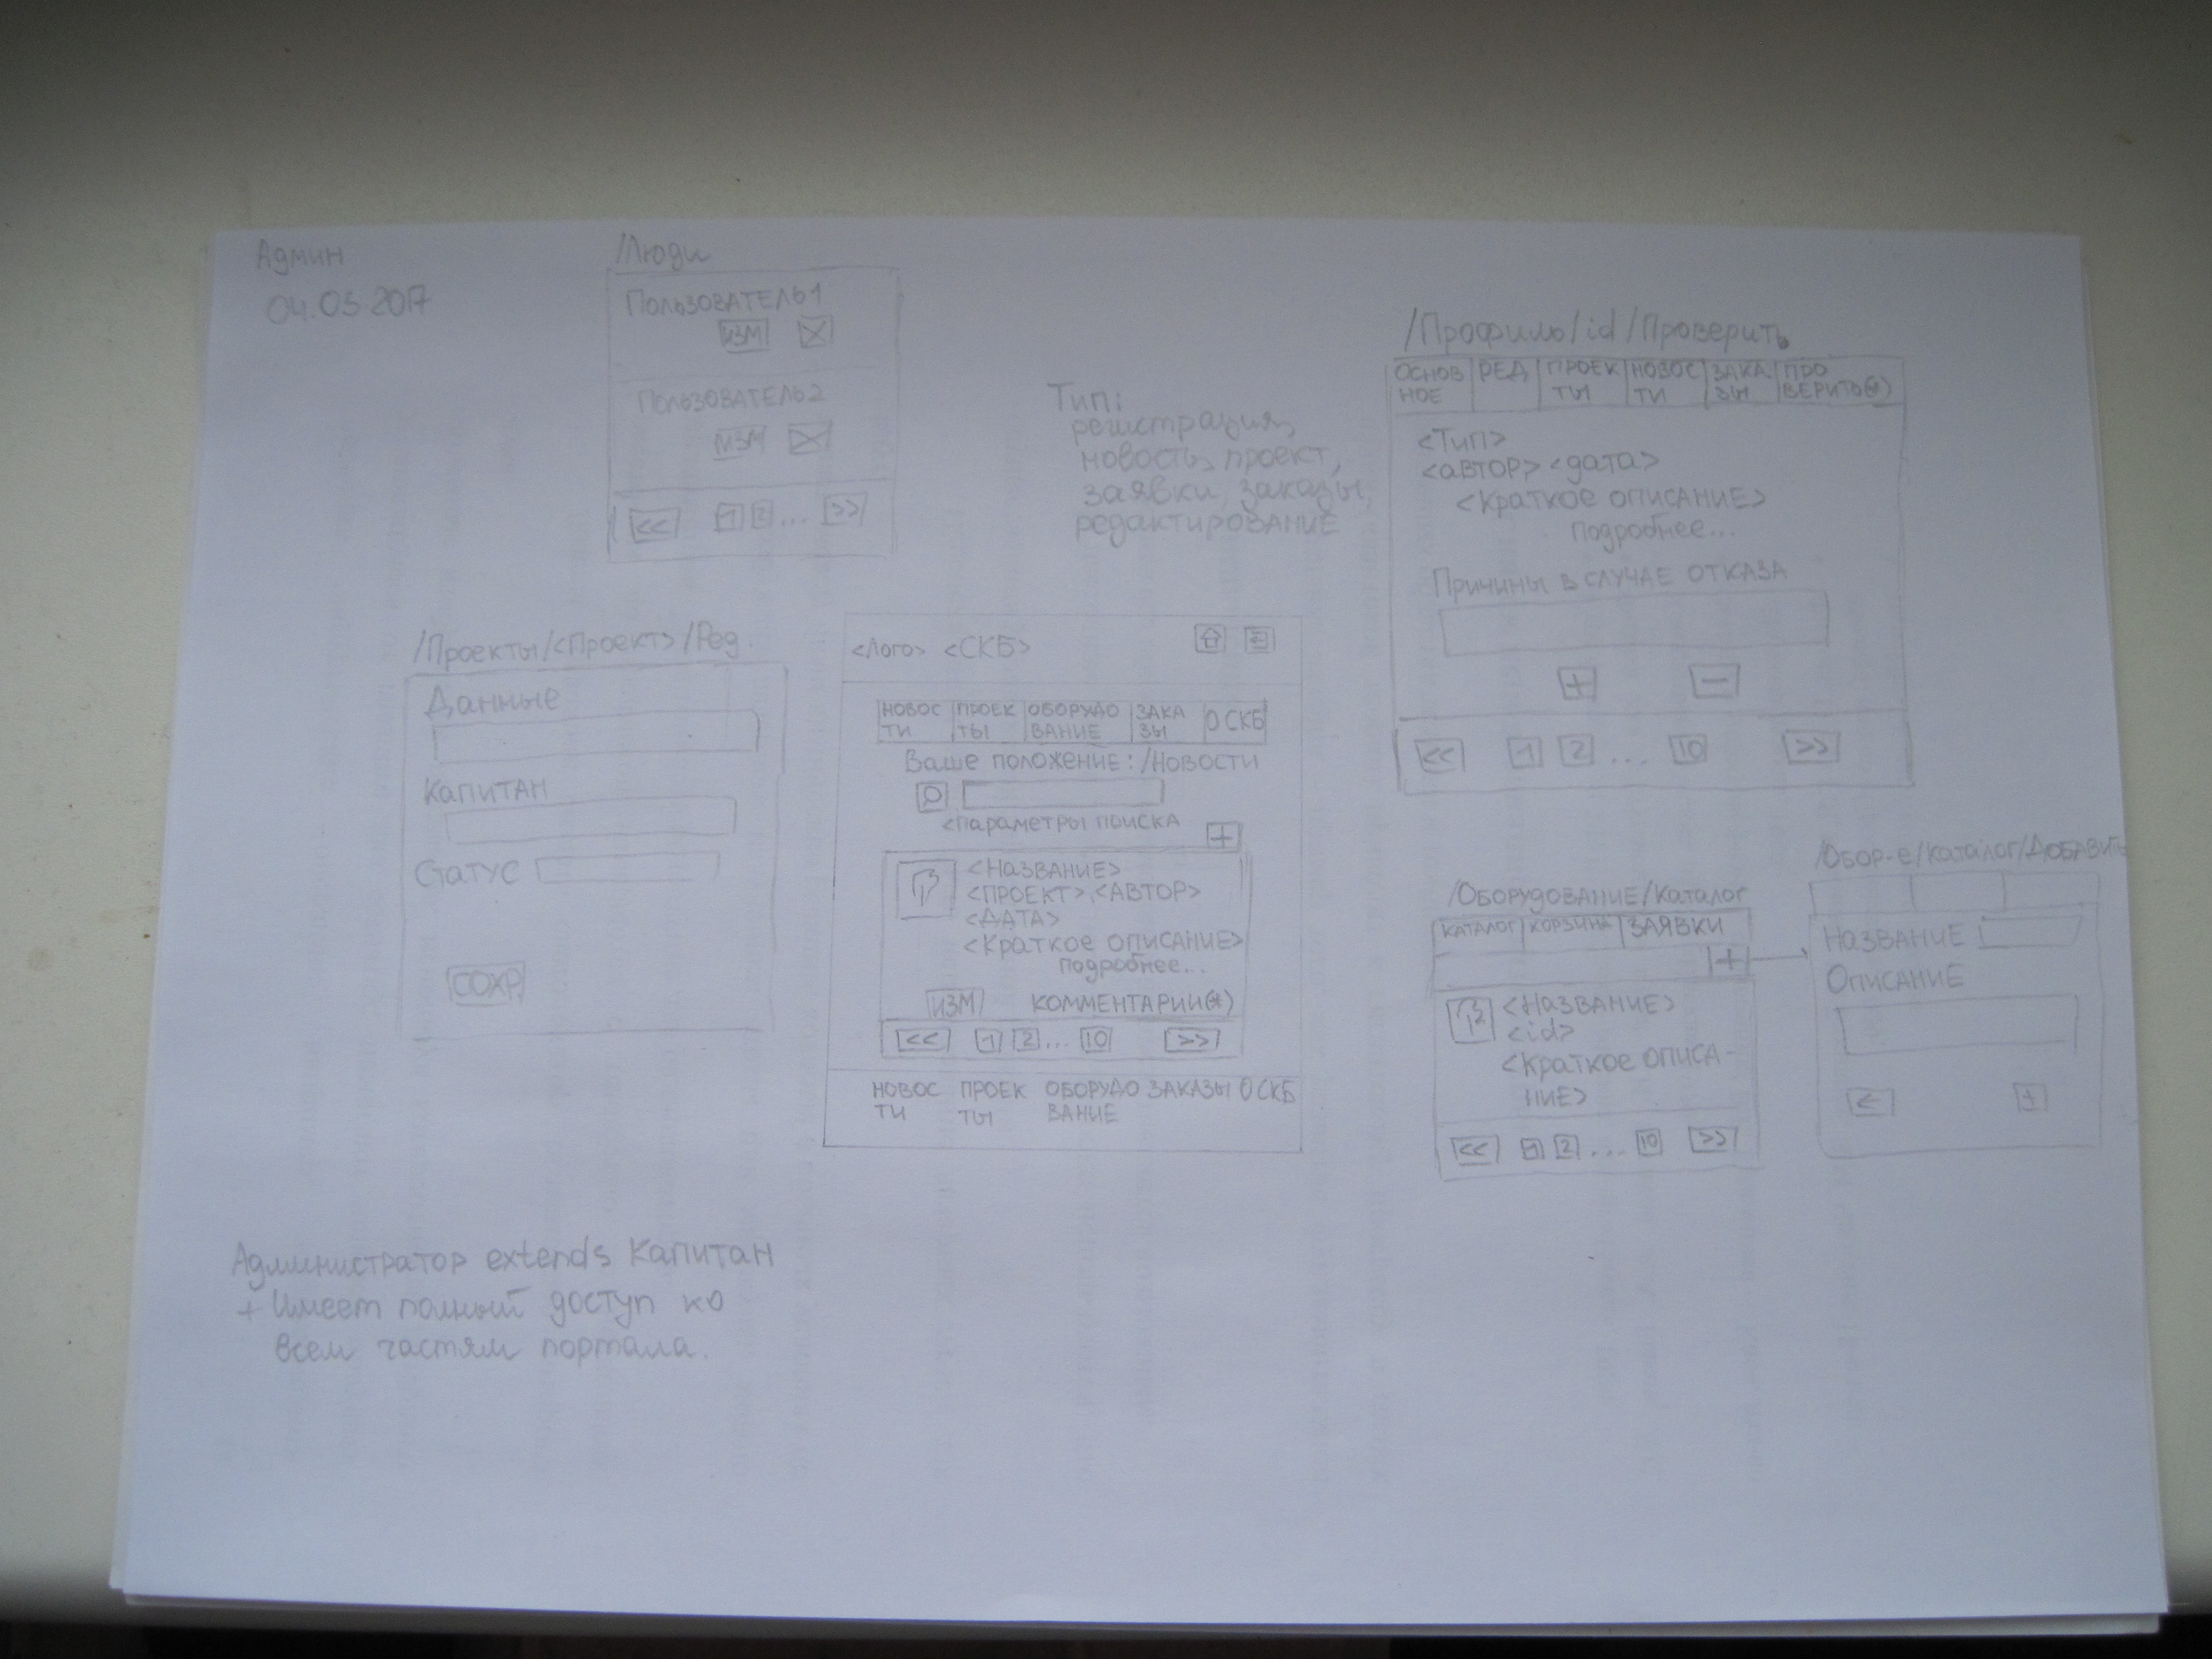 Админ
04.03.2017
/Люди
Пользователь1
изм
Пользователь2
изм
<< 1 2 ... >>
Тип:
регистрация,
новость, проект,
заявки, заказы,
редактирование
/Профиль/id/Проверить
ОСНОВ РЕД ПРОЕК НОВОС ЗАКА ПРО
НОЕ ТЫ ТИ ЗЫ ВЕРИТЬ(*)
<Тип>
<автор> <дата>
<Краткое описание>
подробнее...
Причины в случае отказа
+ -
<< 1 2 ... 10 >>
/Проекты/<Проект>/Ред.
Данные
Капитан
Статус
СОХР
<Лого> <СКБ>
НОВОС ПРОЕК ОБОРУДО ЗАКА О СКБ
ТИ ТЫ ВАНИЕ ЗЫ
Ваше положение: /Новости
<параметры поиска
+
<Название>
<ПРОЕКТ>, <АВТОР>
<ДАТА>
<Краткое описание>
подробнее...
ИЗМ КОММЕНТАРИИ(*)
<< 1 2 ... 10 >>
НОВОС ПРОЕК ОБОРУДО ЗАКАЗЫ О СКБ
ТИ ТЫ ВАНИЕ
/Оборудование/Каталог
КАТАЛОГ КОРЗИНА ЗАЯВКИ
+
<Название>
<id>
<Краткое описа-
ние>
<< 1 2 ... 10 >>
/Обор-е/Каталог/Добавить
Название
Описание
< +
Администратор extends Капитан
+ Имеет полный доступ ко
всем частям портала.